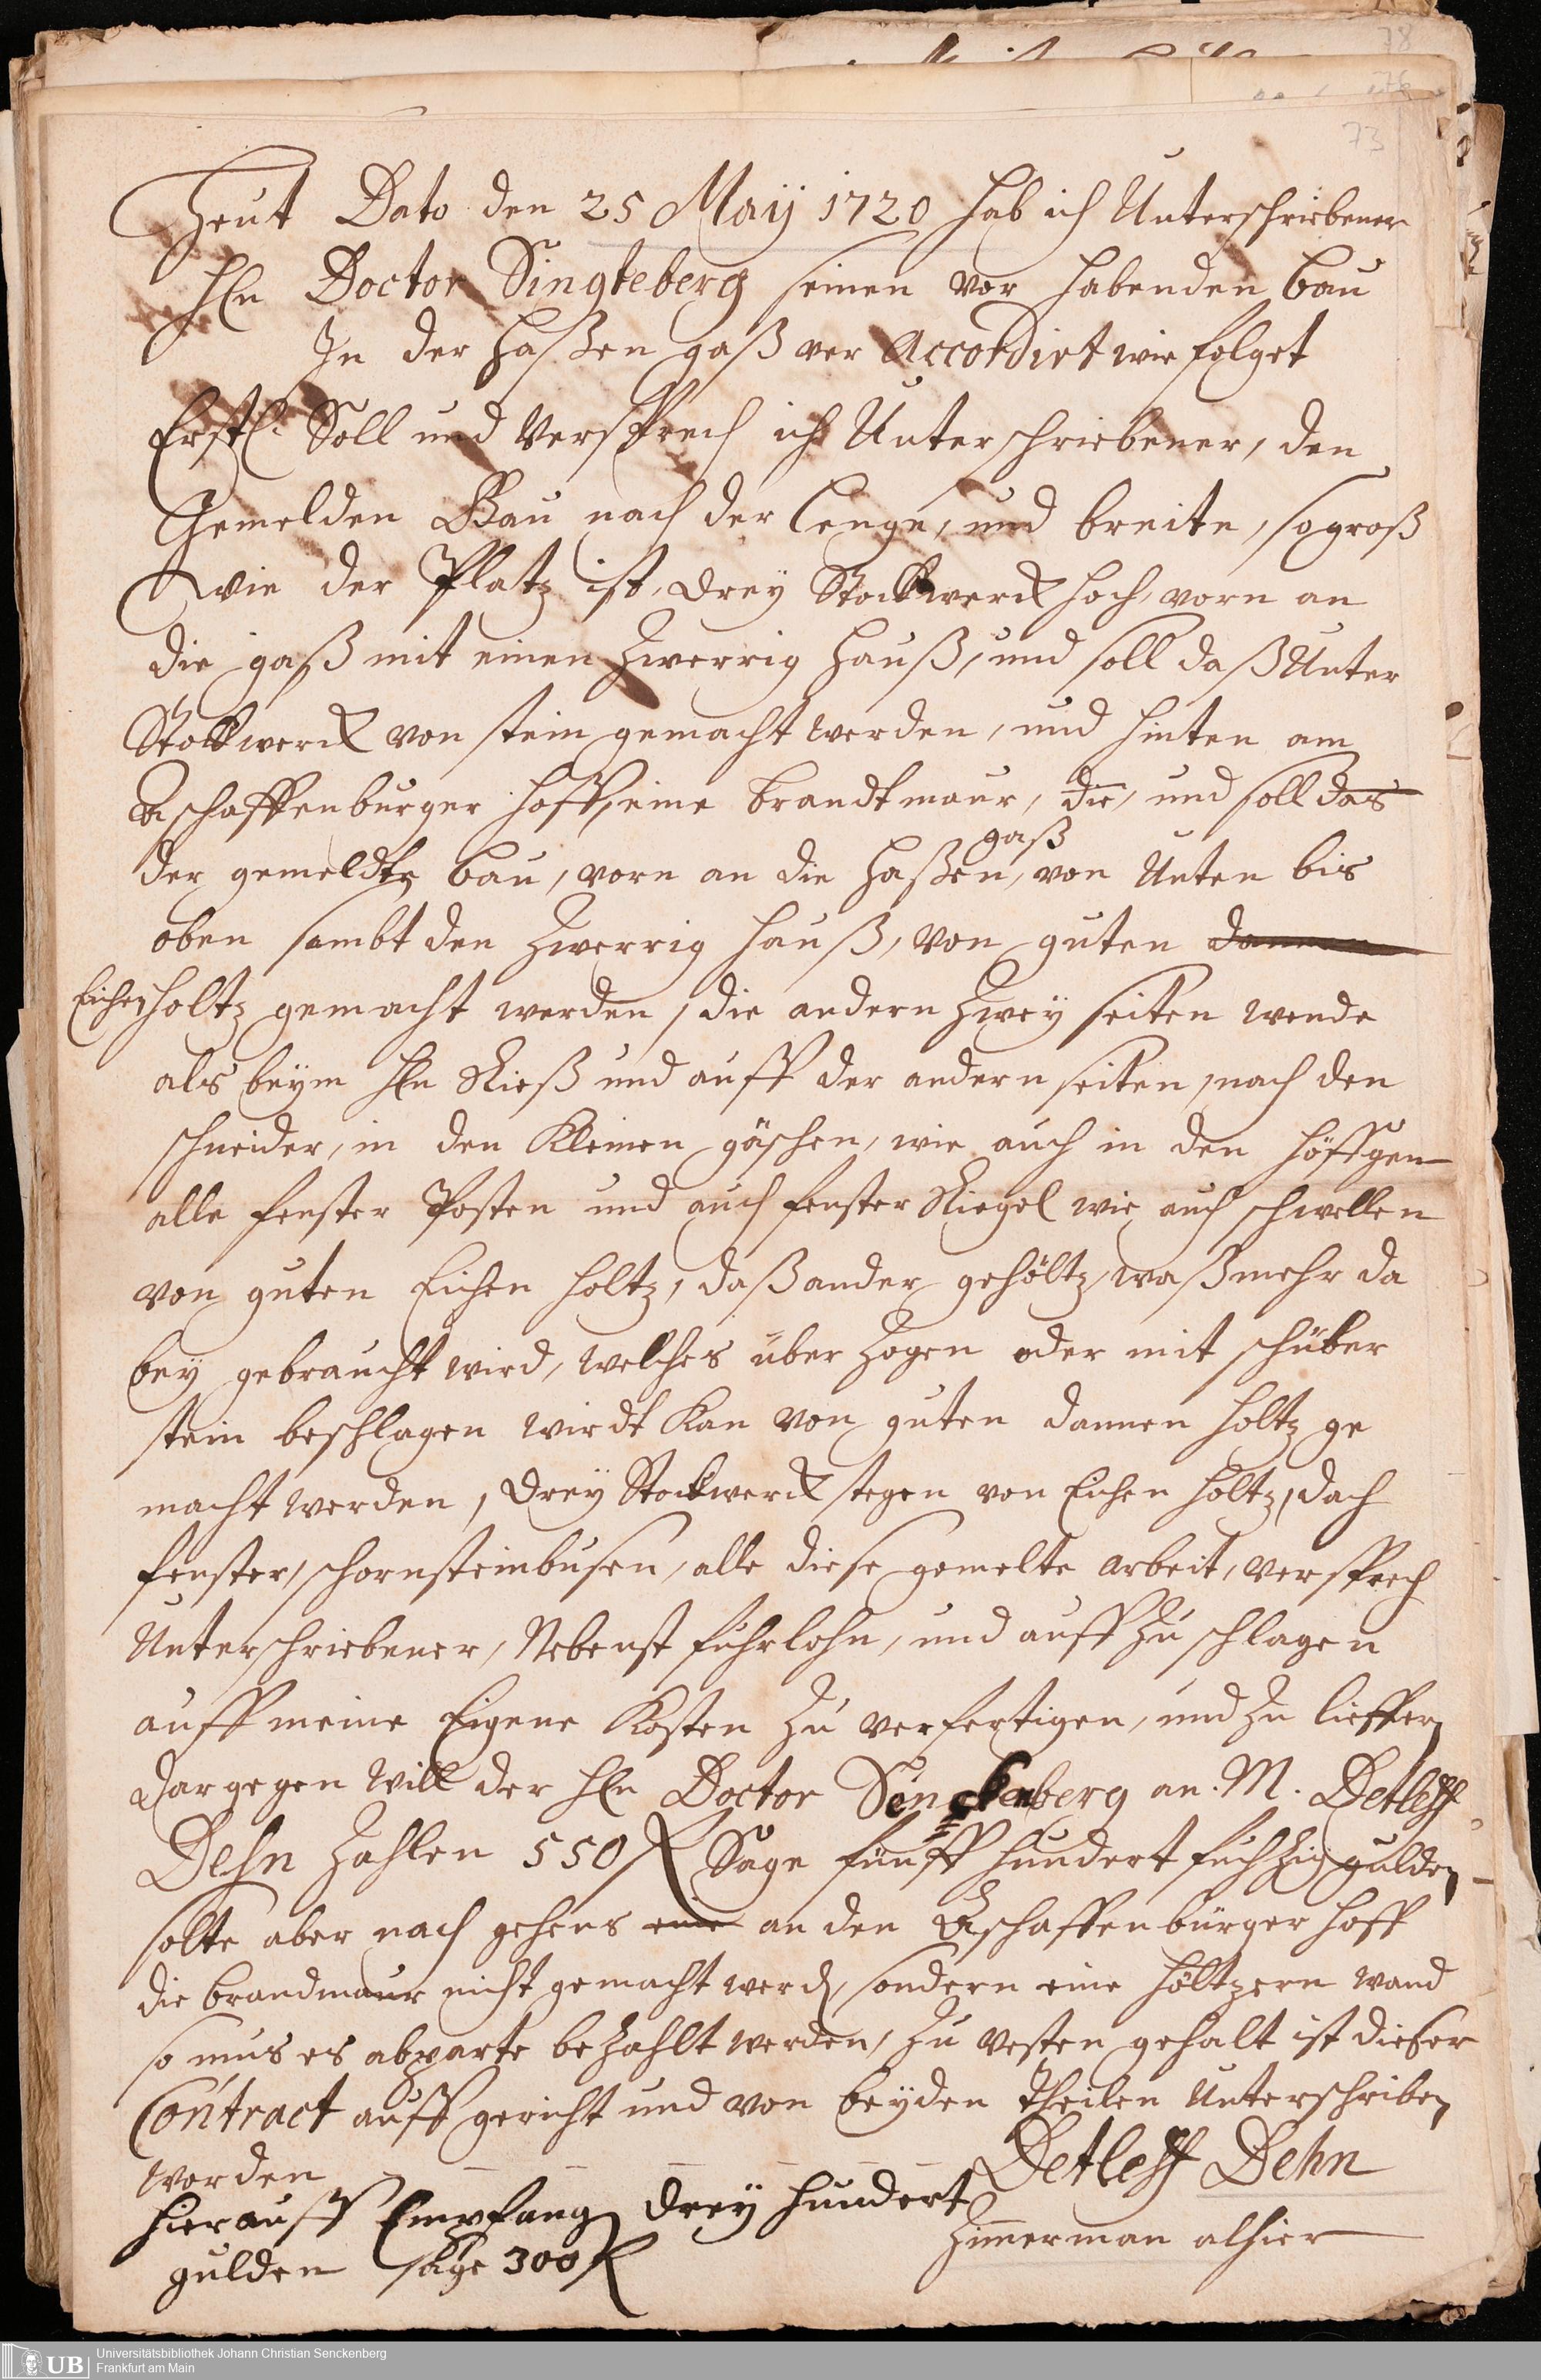 78
76
73
Heut Dato den 25 Maij 1720 hab ich Unterschriebener
Hln Doctor Singkeberg seinen vor habenden bau
In der Haßen gaß ver Accordirt wie folget
Erstl. Soll und Versprech ich Unterschriebener, den
Gemelden Bau nach der lenge, und breite, so groß
wie der Platz ist, drey Stockwerck hoch, vorn an
die gaß mit einen Zwerrig Hauß, und soll daß Unter
Stockwerck von stein gemacht werden, und hinten am
Aschaffenburger hoff, eine brandtmaur, die, und soll das
der gemeldte bau, vorn an die Haßen gaß, von Unten bis
oben sambt den Zwerrig Hauß, von guten dannen
Eichen holtz gemacht werden, die andern Zwey seiten wende
als beym Hln Rieß und auff der andern seiten, nach den
schneider, in den Kleinen gäschen, wie auch in den höffgen
alle fenster Posten und auch fenster Riegel wie auch schwellen
von guten Eichen holtz, daß ander gehöltz, waß mehr da
bey gebraucht wird, welches über Zogen oder mit schüber
stein beschlagen wirdt Kan von guten dannen holtz ge
macht werden, drey Stockwerck stegen von Eichen holtz, dach
fenster, schornsteinbusen, alle diese gemelte arbeit, versprech
Unterschriebener, Nebenst fuhrlohn, und auff Zu schlagen
auff meine Eigene Kosten Zu verfertigen, und Zu lieffern
dargegen Will der Hln Doctor Senckenberg an M. Detleff
Dehn Zahlen 550 f Sage fünff hundert fuchzig gulden
solte aber nach gehens eine an den Aschaffenbürger hoff
die brandmaur nicht gemacht werd, sondern eine höltzern wand
so mus es abparte beZahlt werden, Zu vesten gehalt ist dieser
Contract auff gericht und von beyden theilen Unterschriben
worden
Detleff Dehn
Zimmerman alhier
hierauff Empfang drey hundert
gulden sage 300 f
UB
Universitätsbibliothek Johann Christian Senckenberg
Frankfurt am Main